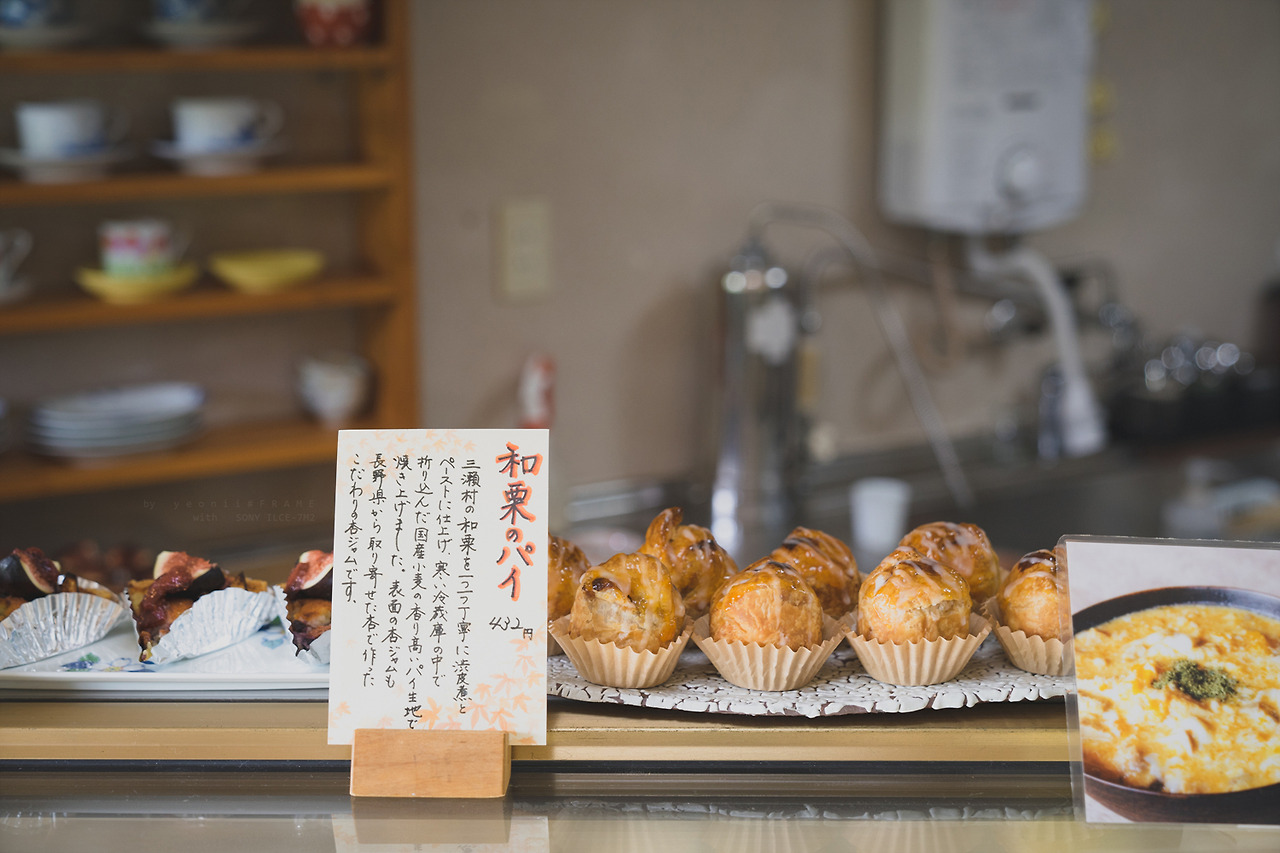 和栗のパイ
432円
三瀬村の和栗を一つ一つ丁寧に渋皮煮と
ペーストに仕上げ、寒い冷蔵庫の中で
折り込んだ国産小麦の香り高いパイ生地で
焼き上げました。表面の杏ジャムも
長野県から取り寄せた杏で作った
こだわりの杏ジャムです。
by yeonlieFRAMES
with SONY ILCE-7M3